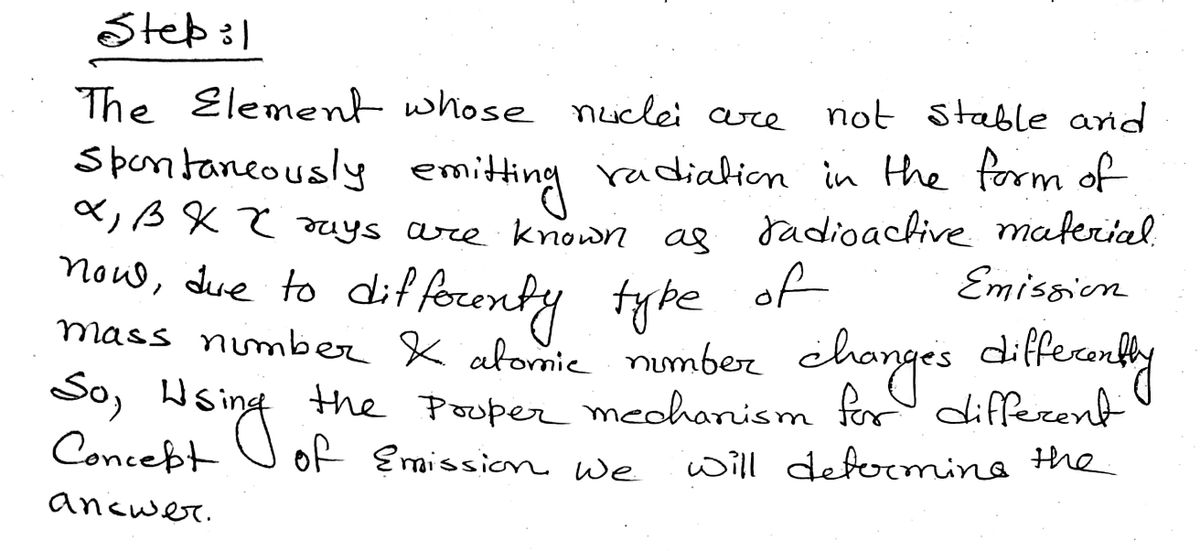 Step :1
The Element whose nuclei are not stable and
spontaneously emitting radiation in the form of
α, β & γ rays are known as radioactive material.
now, due to differently type of Emission
mass number & atomic number changes differently
So, Using the Proper mechanism for different
Concept of Emission we will determine the
answer.